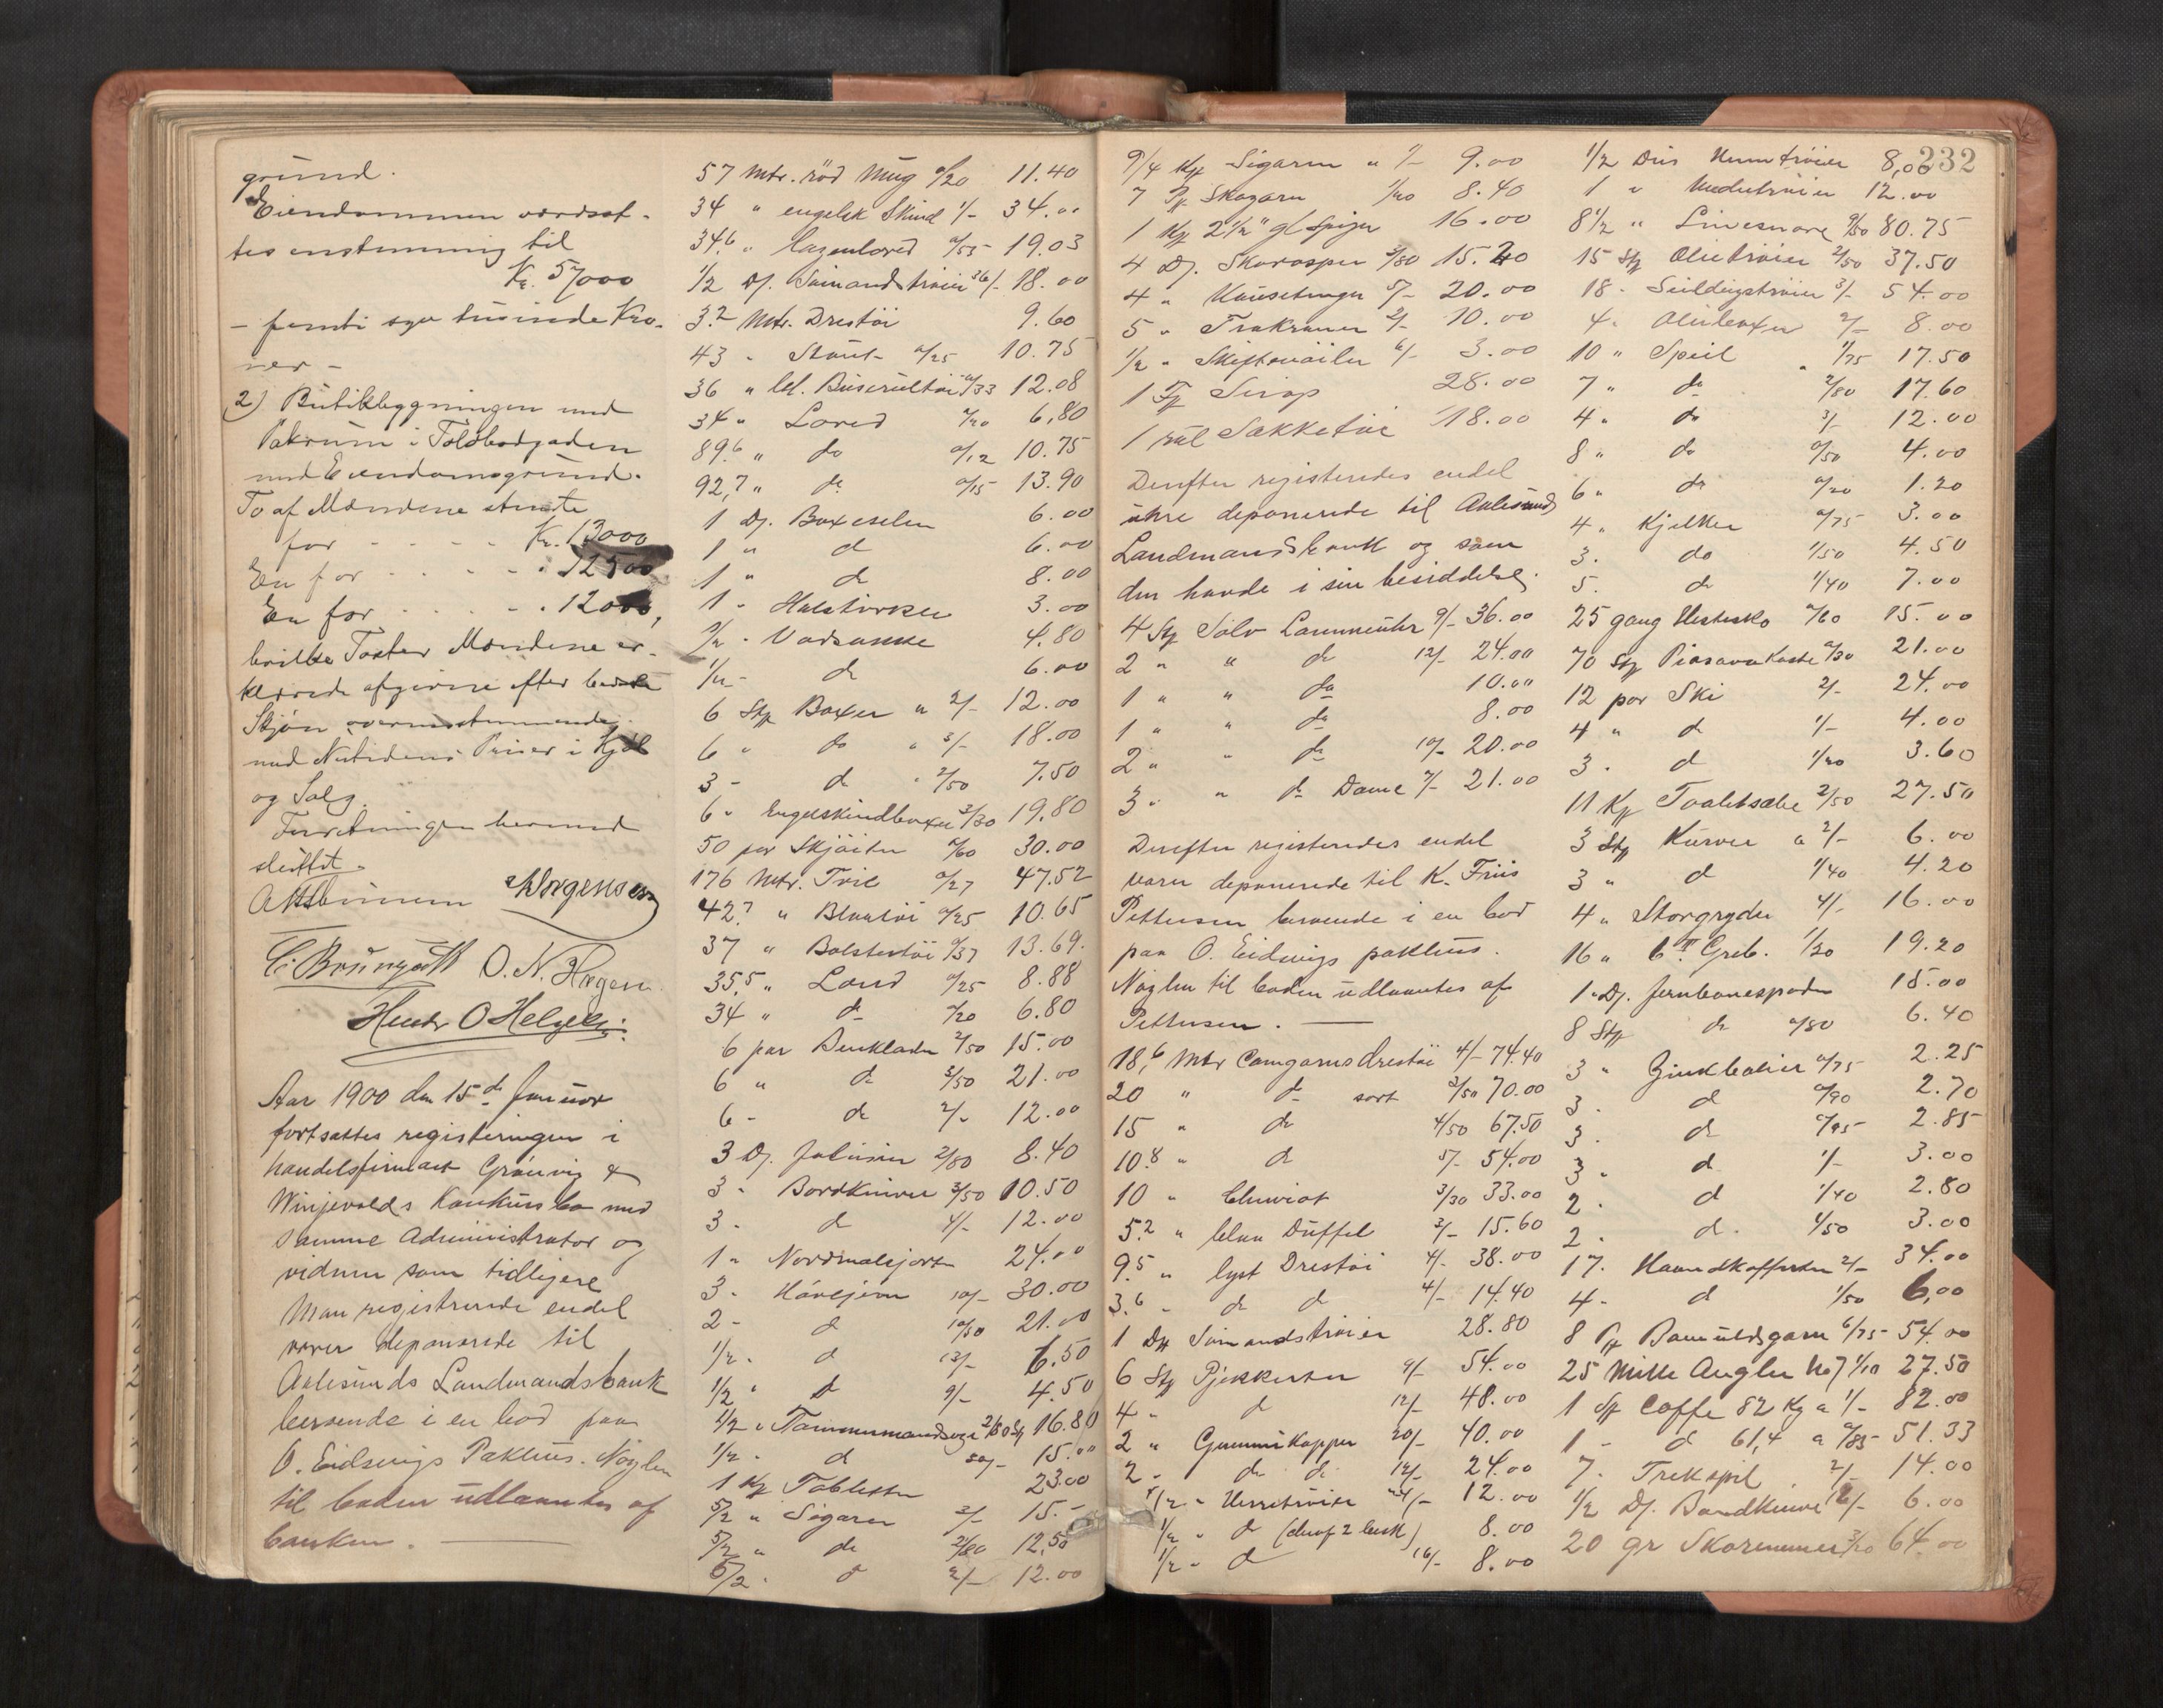 grund.
Eiendommen værdsat-
tes enstemmig til
Kr. 57000
- femti syv tusinde Kro-
ner -
2) Butikbygningen med
Pakrum i Toldbodgaden
med Eiendomsgrund.
To af Mændene stemte
for - - - - Kr. 13000
En for - - - - - 12500
En for - - - - - 12000,
hvilke Taxter Mændene er-
klærede afgivne efter bedste
Skjøn overensstemmende
med Nutidens Priser i Kjøb
og Salg.
Forretningen hermed
sluttet.
O. N. Hagen
Aar 1900 den 15de Januar
fortsattes registeringen i
handelsfirmaet Grønvig &
Winjevolds Konkursbo med
samme Administrator og
vidner som tidligere
Man registrerede endel
varer deponerede til
Aalesunds Landmandsbank
beroende i en bod paa
O. Eidsvigs Pakhus. Nøglen
til boden udlaantes af
banken.
57 Mtr. rød Mug 0/20 11.40
34 " engelsk Skind 1/- 34.00
34.6 " 0/55 19.03
1/2 Dj. Sömandströier 36/- 18.00
3.2 Mtr. Drestöi 9.60
43 - Stout- 0/25 10.75
36 " bl. Buserultöi 0/33 12.08
34 " Lared 0/20 6,80
89.6 " do 0/12 10.75
92,7 " do 0/15 13.90
1 Dj. Buxeseler 6.00
1 " d 6.00
1 " d 8.00
1 - Halstörker 3.00
1/2 - 4.80
1/2 - d 6.00
6 Stk Buxer a 2/- 12.00
6 " do " 3/- 18.00
3 - d " 2/50 7.50
6 " Engelskindbuxer 3/30 19,80
50 par Skjöiter 0/60 30.00
176 Mtr. Tvil 0/27 47.52
42.7 " Blaatöi 0/25 10.65
37 " Bolstertöi 0/37 13.69.
35,5 " Lared 0/25 8.88
34 " d 0/20 6.80
6 par Benklæder 2/50 15.00
6 " d 3/50 21.00
6 - d 2/- 12.00
3 Dj. 2/80 8.40
3 - Bordkniver 3/50 10.50
3 - d 4/- 12.00
1 - Nordmalsjorter 24.00
3 - Hövejern 10/- 30.00
2 - d 10/50 21.00
1/2 - d 13/- 6.50
1/2 " d 9/- 4.50
1/2 " Tömmermandsøxe 2/80 St 16.80
1/2 - d 15.00
1 Kg Tabletter 23.00
5/2 " Sigarer 3/- 15.-
5/2 " do 2/50 12,50
6/2 - d 2/- 12.00
232
9/4 Kg Sigarer " 9.00
7 Pk Skogarn 1/20 8.40
1 Kg 2 1/2" gl Spiger 16.00
4 Dj. Skarasper 3/80 15.20
4 " 5/- 20.00
5 " Trækraner 2/- 10.00
1/2 " Skiftenöiler 6/- 3.00
1 Fj Sirop 28.00
1 rul Sakketöi 18.00
Derefter registeredes endel
uhre deponerede til Aalesunds
Landmandsbank og som
den havde i sin besiddelse.
4 Stk Sølv Lommeuhr 9/- 36.00
2 " " do 12/- 24.00
1 " " do 10.00
1 " " do 8.00
2 " " do 10/- 20.00
3 " " do Dame 7/- 21.00
Derefter registeredes endel
varer deponerede til K. Friis
Pettersen beroende i en bod
paa O. Eidsvigs pakhus.
Nøglen til boden udlaantes af
Pettersen.
18,6 Mtr Camgarnsdrestöi 4/- 74.40
20 " d sort 3/50 70.00
15 " do 4/50 67.50
10.8 " d 5/- 54.00
10 " Cheviot 3/30 33.00
5.2 " blaa Düffel 3/- 15.60
9.5 " lyst Drestöi 4/- 38.00
3.6 - do d 4/- 14.40
1 Dj Sömandströier 28.80
6 Stk Pjekkerter 9/- 54.00
4 - d 12/- 48.00
2 " Gummikapper 20/- 40.00
2 - do do 12/- 24.00
1/2 " Herretröier 24/- 12.00
1/2 " d (deraf 2 besk) 8.00
1/2 - d 16/- 8.00
1/2 Dus 8,00
1 " 12.00
8 1/2 " Linesnore 9/50 80.75
15 Stk Olietröier 2/50 37.50
18 - 3/- 54.00
4 - Oliebuxer 2/- 8.00
10 " Speil 1/75 17.50
7 " do 2/80 17.60
4 " do 3/- 12.00
8 " do 0/50 4.00
6 " do 0/20 1.20
4 " Kjelker 0/75 3.00
3 - do 1/50 4.50
5 - do 1/40 7.00
25 gang Hestesko 0/60 15.00
70 Stk Piasavakoste 0/30 21.00
12 par Ski 2/- 24.00
4 " d 1/- 4.00
3 - d 1/20 3.60
11 Kg Toaletsæbe 2/50 27.50
3 Stk Kurver a 2/- 6.00
3 " d 1/40 4.20
4 " Storgryder 4/- 16.00
16 " Greb. 1/20 19.20
1 Dj. Jernbanespader 15.00
8 Stk do 0/80 6.40
3 " Zinkbalier 0/75 2.25
3 - d 0/90 2.70
3 - d 0/95 2.85
3 " d 1/- 3.00
2 - d 1/40 2.80
2 - d. 1/50 3.00
17 - Haandkofferter 2/- 34.00
4 - d 1/50 6,00
8 Pk Bomuldsgarn 6/75 54.00
25 Mille Angler No 7 1/10 27.50
1 Sk Caffe 82 Kg a 1/- 82.00
1 - d 61,4 a 0/85 51.33
7 - Trekspil 2/- 14.00
1/2 Dj. Baandkniver 12/- 6.00
20 gr Skoremmer 3/20 64.00